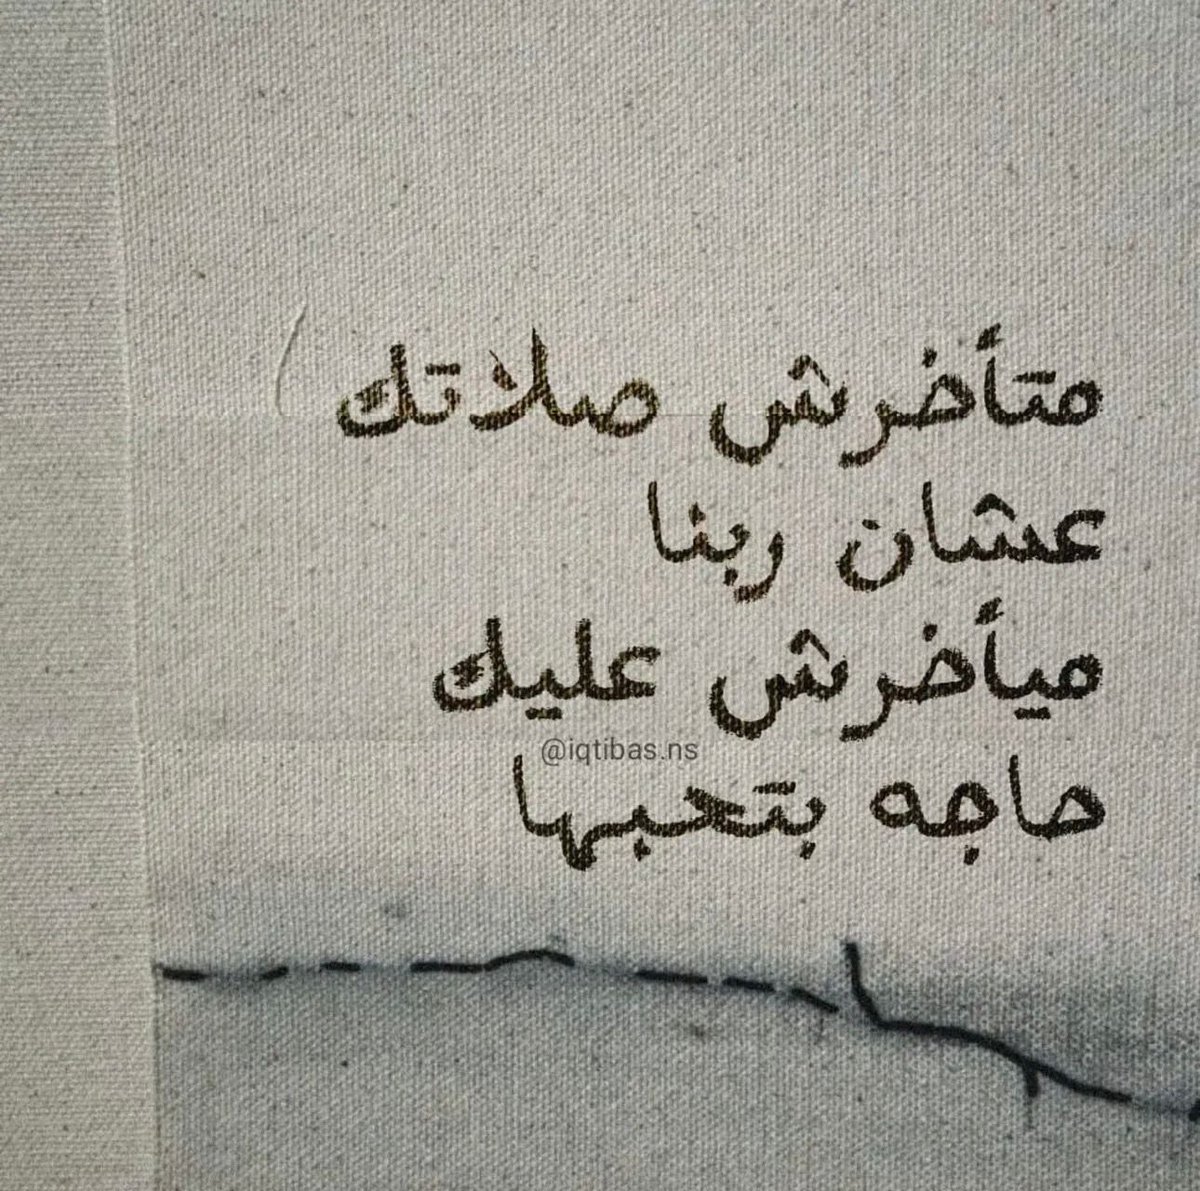 متأخرش صلاتك
عشان ربنا
ميأخرش عليك
@iqtibas.ns
حاجه بتحبها